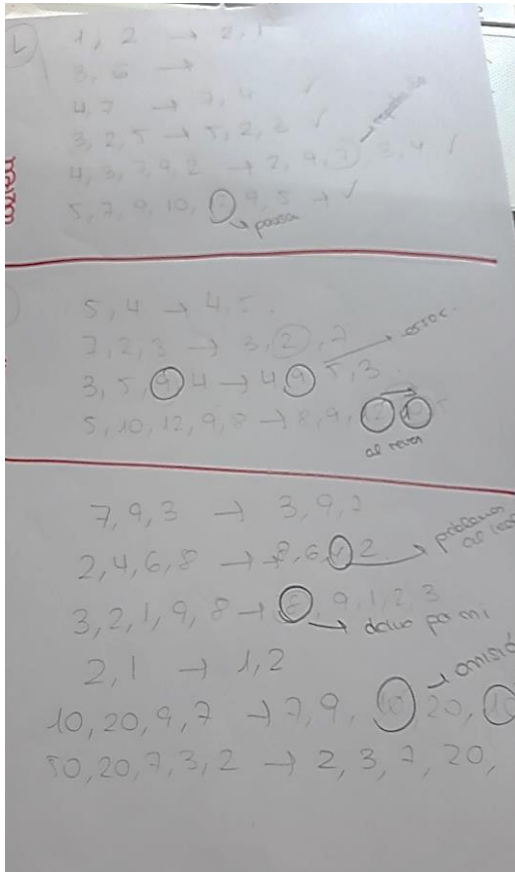 1, 2 → 2, 1
3, 6 →
4, 7 → 7, 4 ✓
3, 2, 5 → 5, 2, 3 ✓
4, 3, 7, 9, 2 → 2, 9, 7, 3, 4 ✓
5, 7, 9, 10, 9, 5 → ✓
→ pausa
5, 4 → 4, 5.
7, 2, 3 → 3, 2, 7
→ error.
3, 5, 9 4 → 4 9 5, 3.
5, 10, 12, 9, 8 → 8, 9, 12 10 5
al reves
7, 9, 3 → 3, 9, 7
2, 4, 6, 8 → 8, 6, 4 2 → problemas al
3, 2, 1, 9, 8 → 9, 1, 2, 3
→ por mi
2, 1 → 1, 2
→ omisió
10, 20, 9, 7 → 7, 9, 10 20, 10
50, 20, 7, 3, 2 → 2, 3, 7, 20,